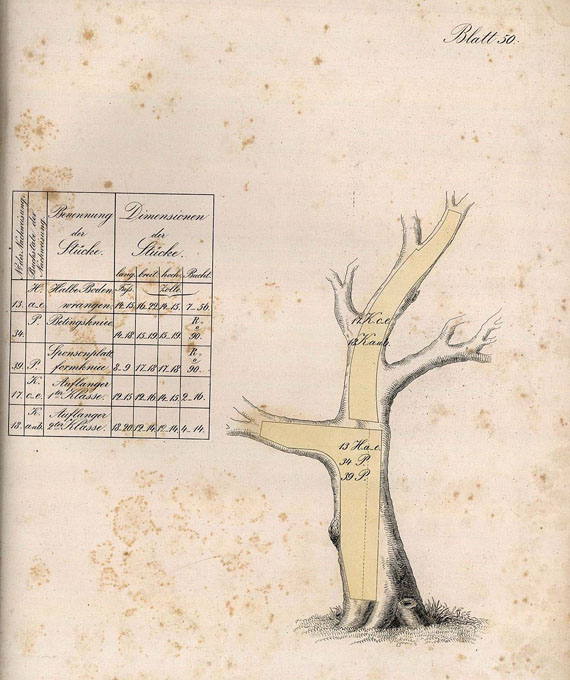 Blatt 50.
N.o der Nachweisung.
Buchstabe der Nachweisung.
Benennung
der
Stücke.
Dimensionen
der
Stücke.
lang. breit. hoch. Bucht.
H. Halbe Boden Fuß Zolle.
13. a_c. wrangen. 14.15. 16.22. 14.15. 7_56.
P. Betingskniee R.
34. 14.18 15.19. 15.19. 90.
Sponsonplatt R.
39. P. formkniee. 8_9 17.18 17.18 90.
K. Auflanger
17. c.e. 1ter Klasse. 12.15 12.16 14.15. 2_16.
K. Auflanger
18. aub. 2ter Klasse. 18.20 12_14 12_14 4_14.
17 K.c.e.
18 K.aub.
13 H.a_c.
34 P.
39 P.